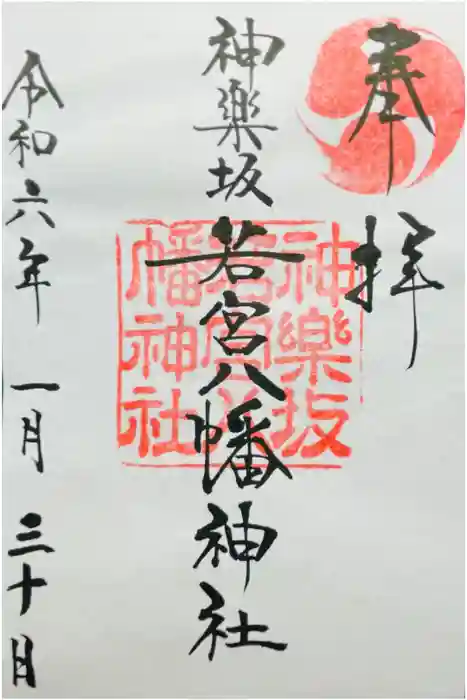 奉拝
神楽坂若宮八幡神社
神樂坂
若宮八
幡神社
令和六年 一月 三十日